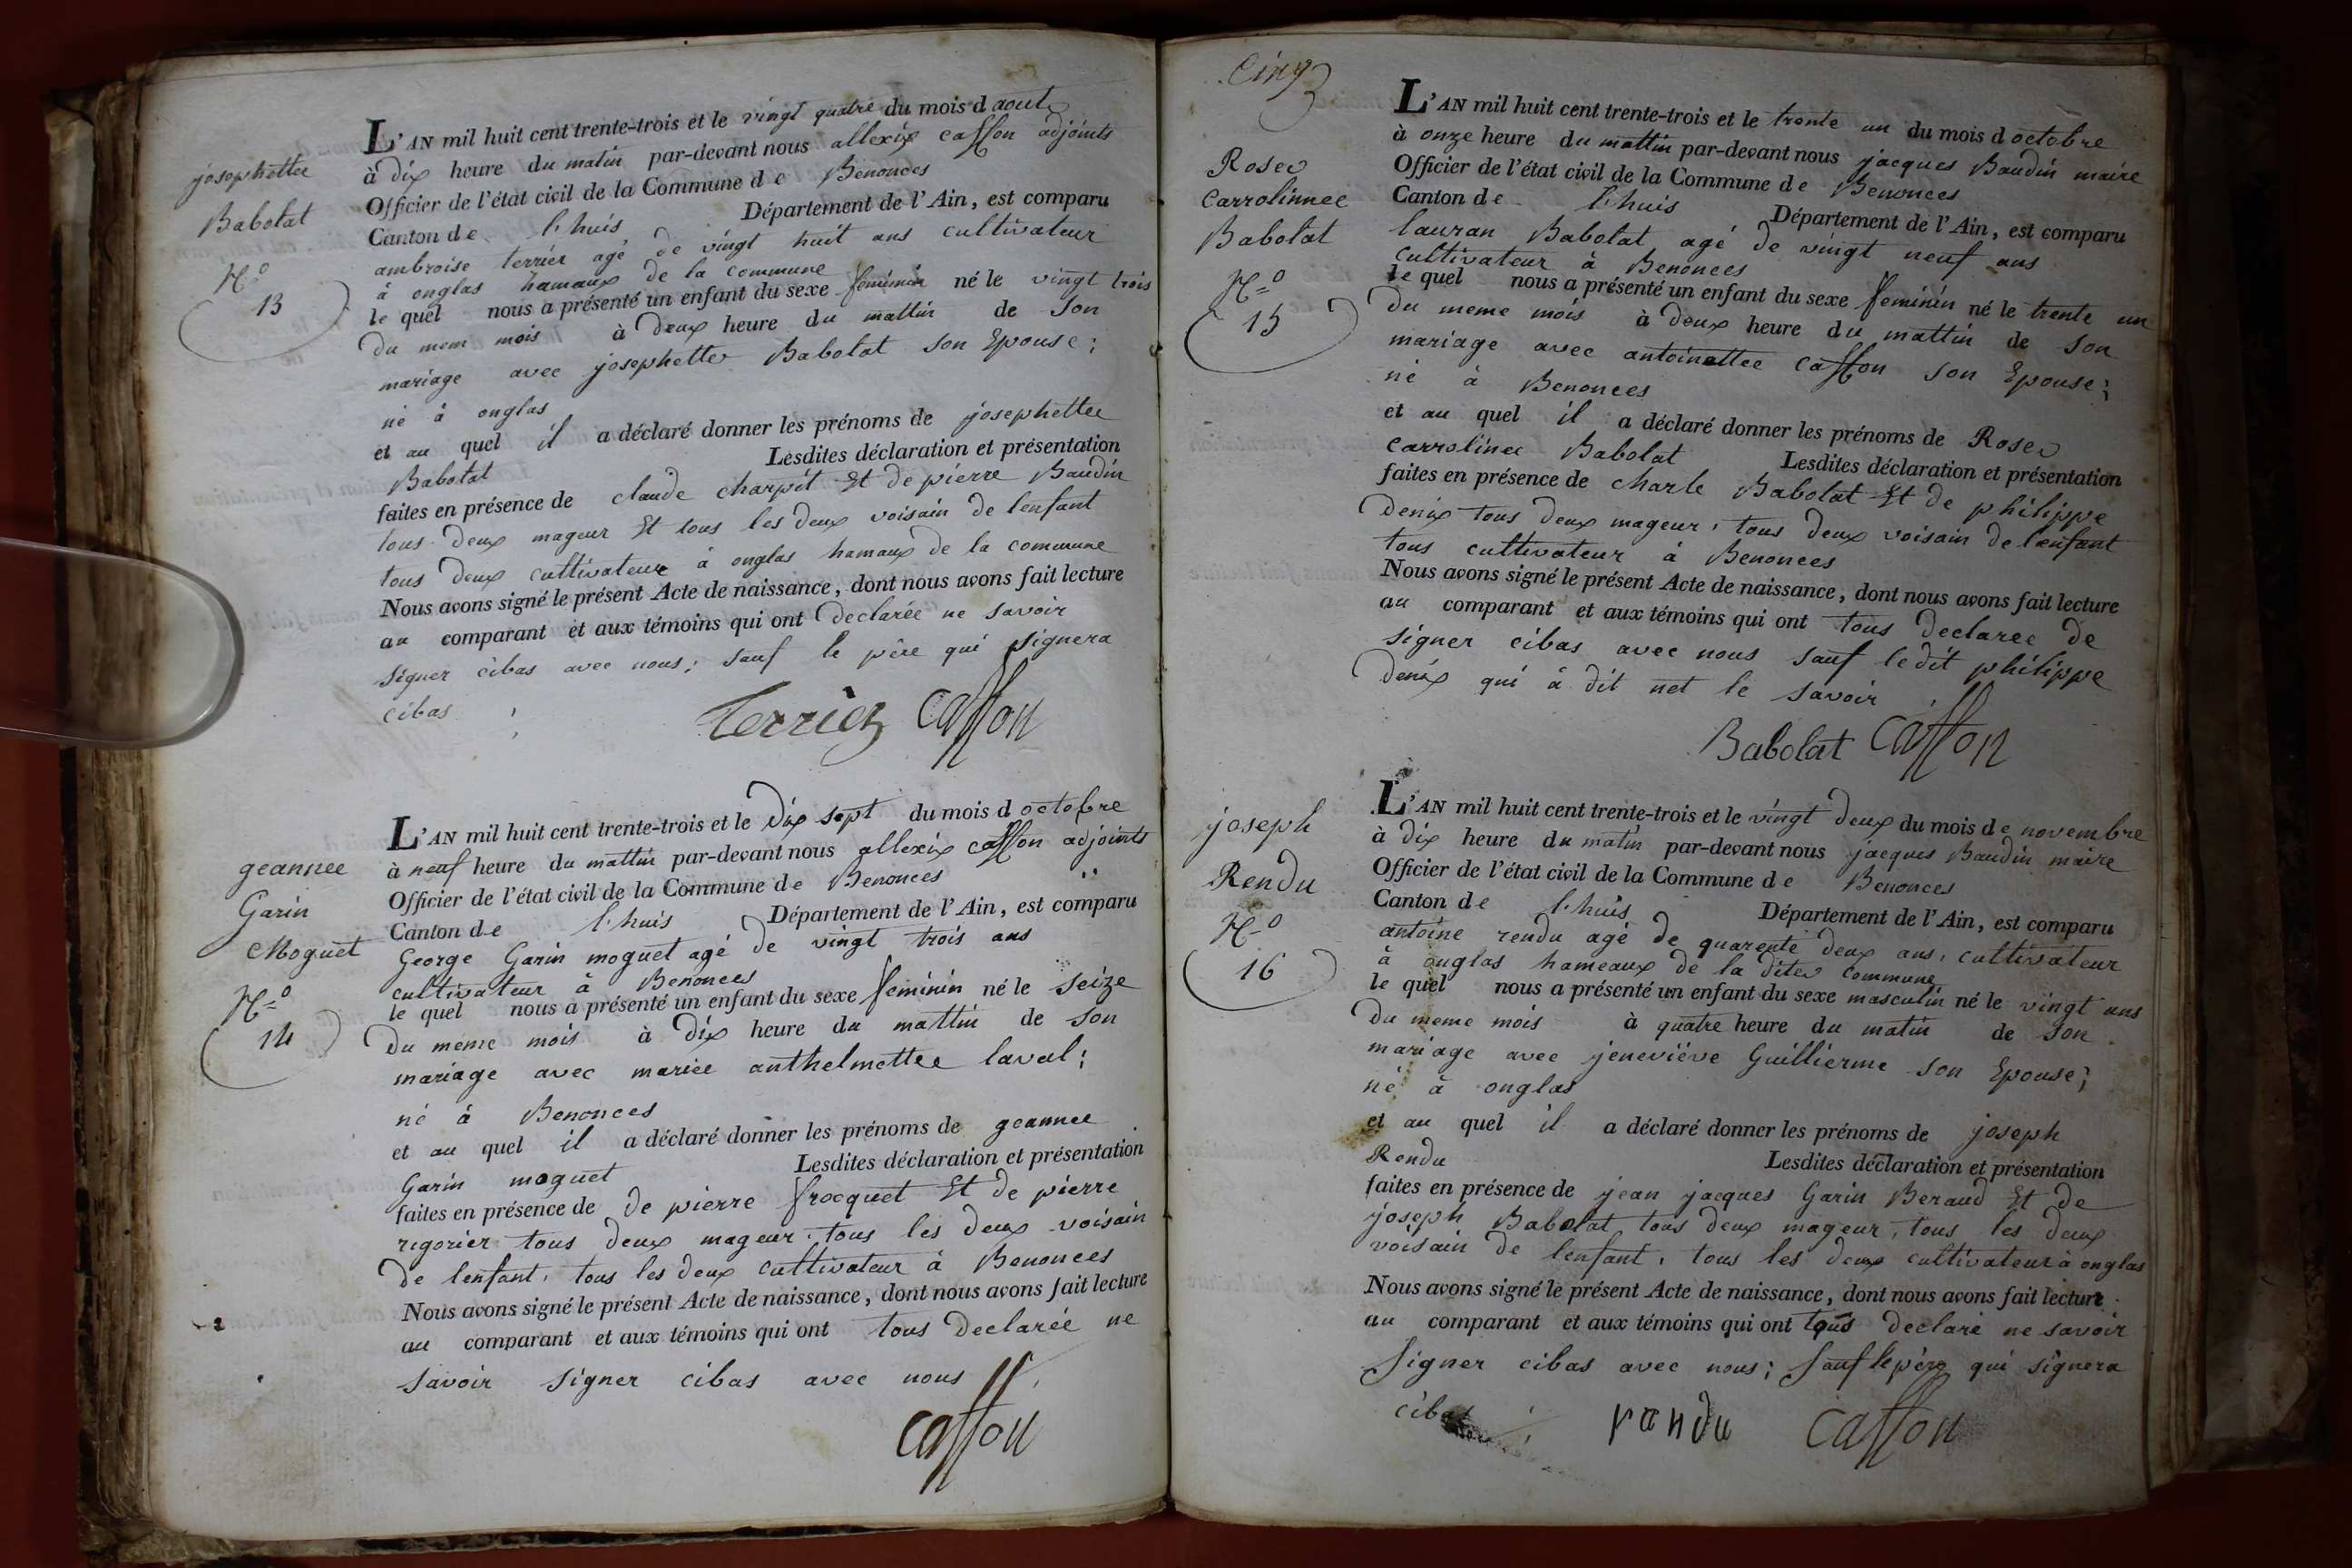 josephettee
Babolat
N.o
13
L'AN mil huit cent trente-trois et le vingt quatre du mois d aout
à dix heure du matin par-devant nous allexix casson adjoints
Officier de l'état civil de la Commune de Benonces
Canton de l'huis Département de l'Ain, est comparu
ambroise terrier agé de vingt huit ans cultivateur
à onglas hamaux de la commune
le quel nous a présenté un enfant du sexe feminin né le vingt trois
du mem mois à deux heure du mattin de son
mariage avec josephette Babolat son Epouse;
né à onglas
et au quel il a déclaré donner les prénoms de josephettee
Babolat Lesdites déclaration et présentation
faites en présence de claude charpit Et de pierre Baudin
tous deux mageur Et tous les deux voisain de lenfant
tous deux cultivateur à onglas hamaux de la commune
Nous avons signé le présent Acte de naissance, dont nous avons fait lecture
au comparant et aux témoins qui ont declarée ne savoir
signer cibas avec nous; sauf le père qui signera
cibas ;
terrier casson
geannee
Garin
Moguet
N=o
14
L'AN mil huit cent trente-trois et le dix sept du mois d octobre
à neuf heure du mattin par-devant nous allexix casson adjoints
Officier de l'état civil de la Commune de Benonces
Canton de l'huis Département de l'Ain, est comparu
George Garin moguet agé de vingt trois ans
cultivateur à Benonces
le quel nous a présenté un enfant du sexe feminin né le seize
du meme mois à dix heure du mattin de son
mariage avec mariee anthelmettee laval;
né à Benonces
et au quel il a déclaré donner les prénoms de geannee
Garin moguet Lesdites déclaration et présentation
faites en présence de de pierre frocquet Et de pierre
rigorier tous deux mageur. tous les deux voisain
de lenfant, tous les deux cultivateur à Benonces
Nous avons signé le présent Acte de naissance, dont nous avons fait lecture
au comparant et aux témoins qui ont tous declarée ne
savoir signer cibas avec nous
casson
Cinq
Rose
Carrolinnee
Babolat
N=o
15
L'AN mil huit cent trente-trois et le trente un du mois d octobre
à onze heure du mattin par-devant nous jacques Baudin maire
Officier de l'état civil de la Commune de Benonces
Canton de l'huis Département de l'Ain, est comparu
lauran Babolat agé de vingt neuf ans
cultivateur à Benonces
le quel nous a présenté un enfant du sexe feminin né le trente un
du meme mois à deux heure du mattin de son
mariage avec antoinettee casson son Epouse;
né à Benonces
et au quel il a déclaré donner les prénoms de Rose
carrolinee Babolat Lesdites déclaration et présentation
faites en présence de charle Babolat Et de philippe
denix tous deux mageur, tous deux voisain de lenfant
tous cultivateur à Benonces
Nous avons signé le présent Acte de naissance, dont nous avons fait lecture
au comparant et aux témoins qui ont tous declaree de
signer cibas avec nous sauf ledit philippe
denix qui à dit net le savoir
Babolat Casson
joseph
Rendu
N-o
16
L'AN mil huit cent trente-trois et le vingt deux du mois de novembre
à dix heure du matin par-devant nous jacques Baudin maire
Officier de l'état civil de la Commune de Benonces
Canton de l'huis Département de l'Ain, est comparu
antoine rendu agé de quarente deux ans, cultivateur
à onglas hameaux de la dite commune
le quel nous a présenté un enfant du sexe masculin né le vingt uns
du meme mois à quatre heure du matin de son
mariage avec jeneviève Guillierme son Epouse;
né à onglas
et au quel il a déclaré donner les prénoms de joseph
Rendu Lesdites déclaration et présentation
faites en présence de jean jacques Garin Beraud Et de
joseph Babolat tous deux mageur, tous les deux
voisain de lenfant, tous les deux cultivateur à onglas
Nous avons signé le présent Acte de naissance, dont nous avons fait lecture
au comparant et aux témoins qui ont tous declaré ne savoir
Signer cibas avec nous; Sauf le père qui signera
cibas
randu casson